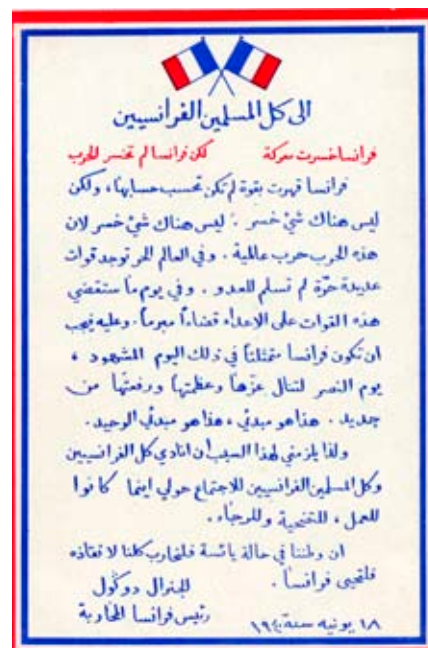 الى كل المسلمين الفرانسيين
فرانسا خسرت معركة لكن فرانسا لم تخسر الحرب
فرانسا قهرت بقوة لم تكن تحسب حسابها، ولكن
ليس هناك شيء خسر. ليس هناك شيء خسر لان
هذه الحرب حرب عالمية. وفي العالم الحر توجد قوات
عديدة حرّة لم تسلم للعدو. وفي يوم ما ستقضي
هذه القوات على الاعداء قضاءاً مبرماً. وعليه فيجب
ان تكون فرانسا متمثلتاً في ذلك اليوم المشهود،
يوم النصر لتنال عزّها وعظمتها ورفعتها من
جديد. هذا هو مبدئي، هذا هو مبدئي الوحيد.
ولذا يلزمني لهذا السبب ان انادي كل الفرانسيين
وكل المسلمين الفرانسيين للاجتماع حولي اينما كانوا
للعمل، للتضحية وللرجاء.
ان وطننا في حالة يائسة فلنحارب كلنا لانقاذه
فلتحيى فرانسا.
الجنرال دوكول
رئيس فرانسا المحاربة
١٨ يونيه سنة ١٩٤٠